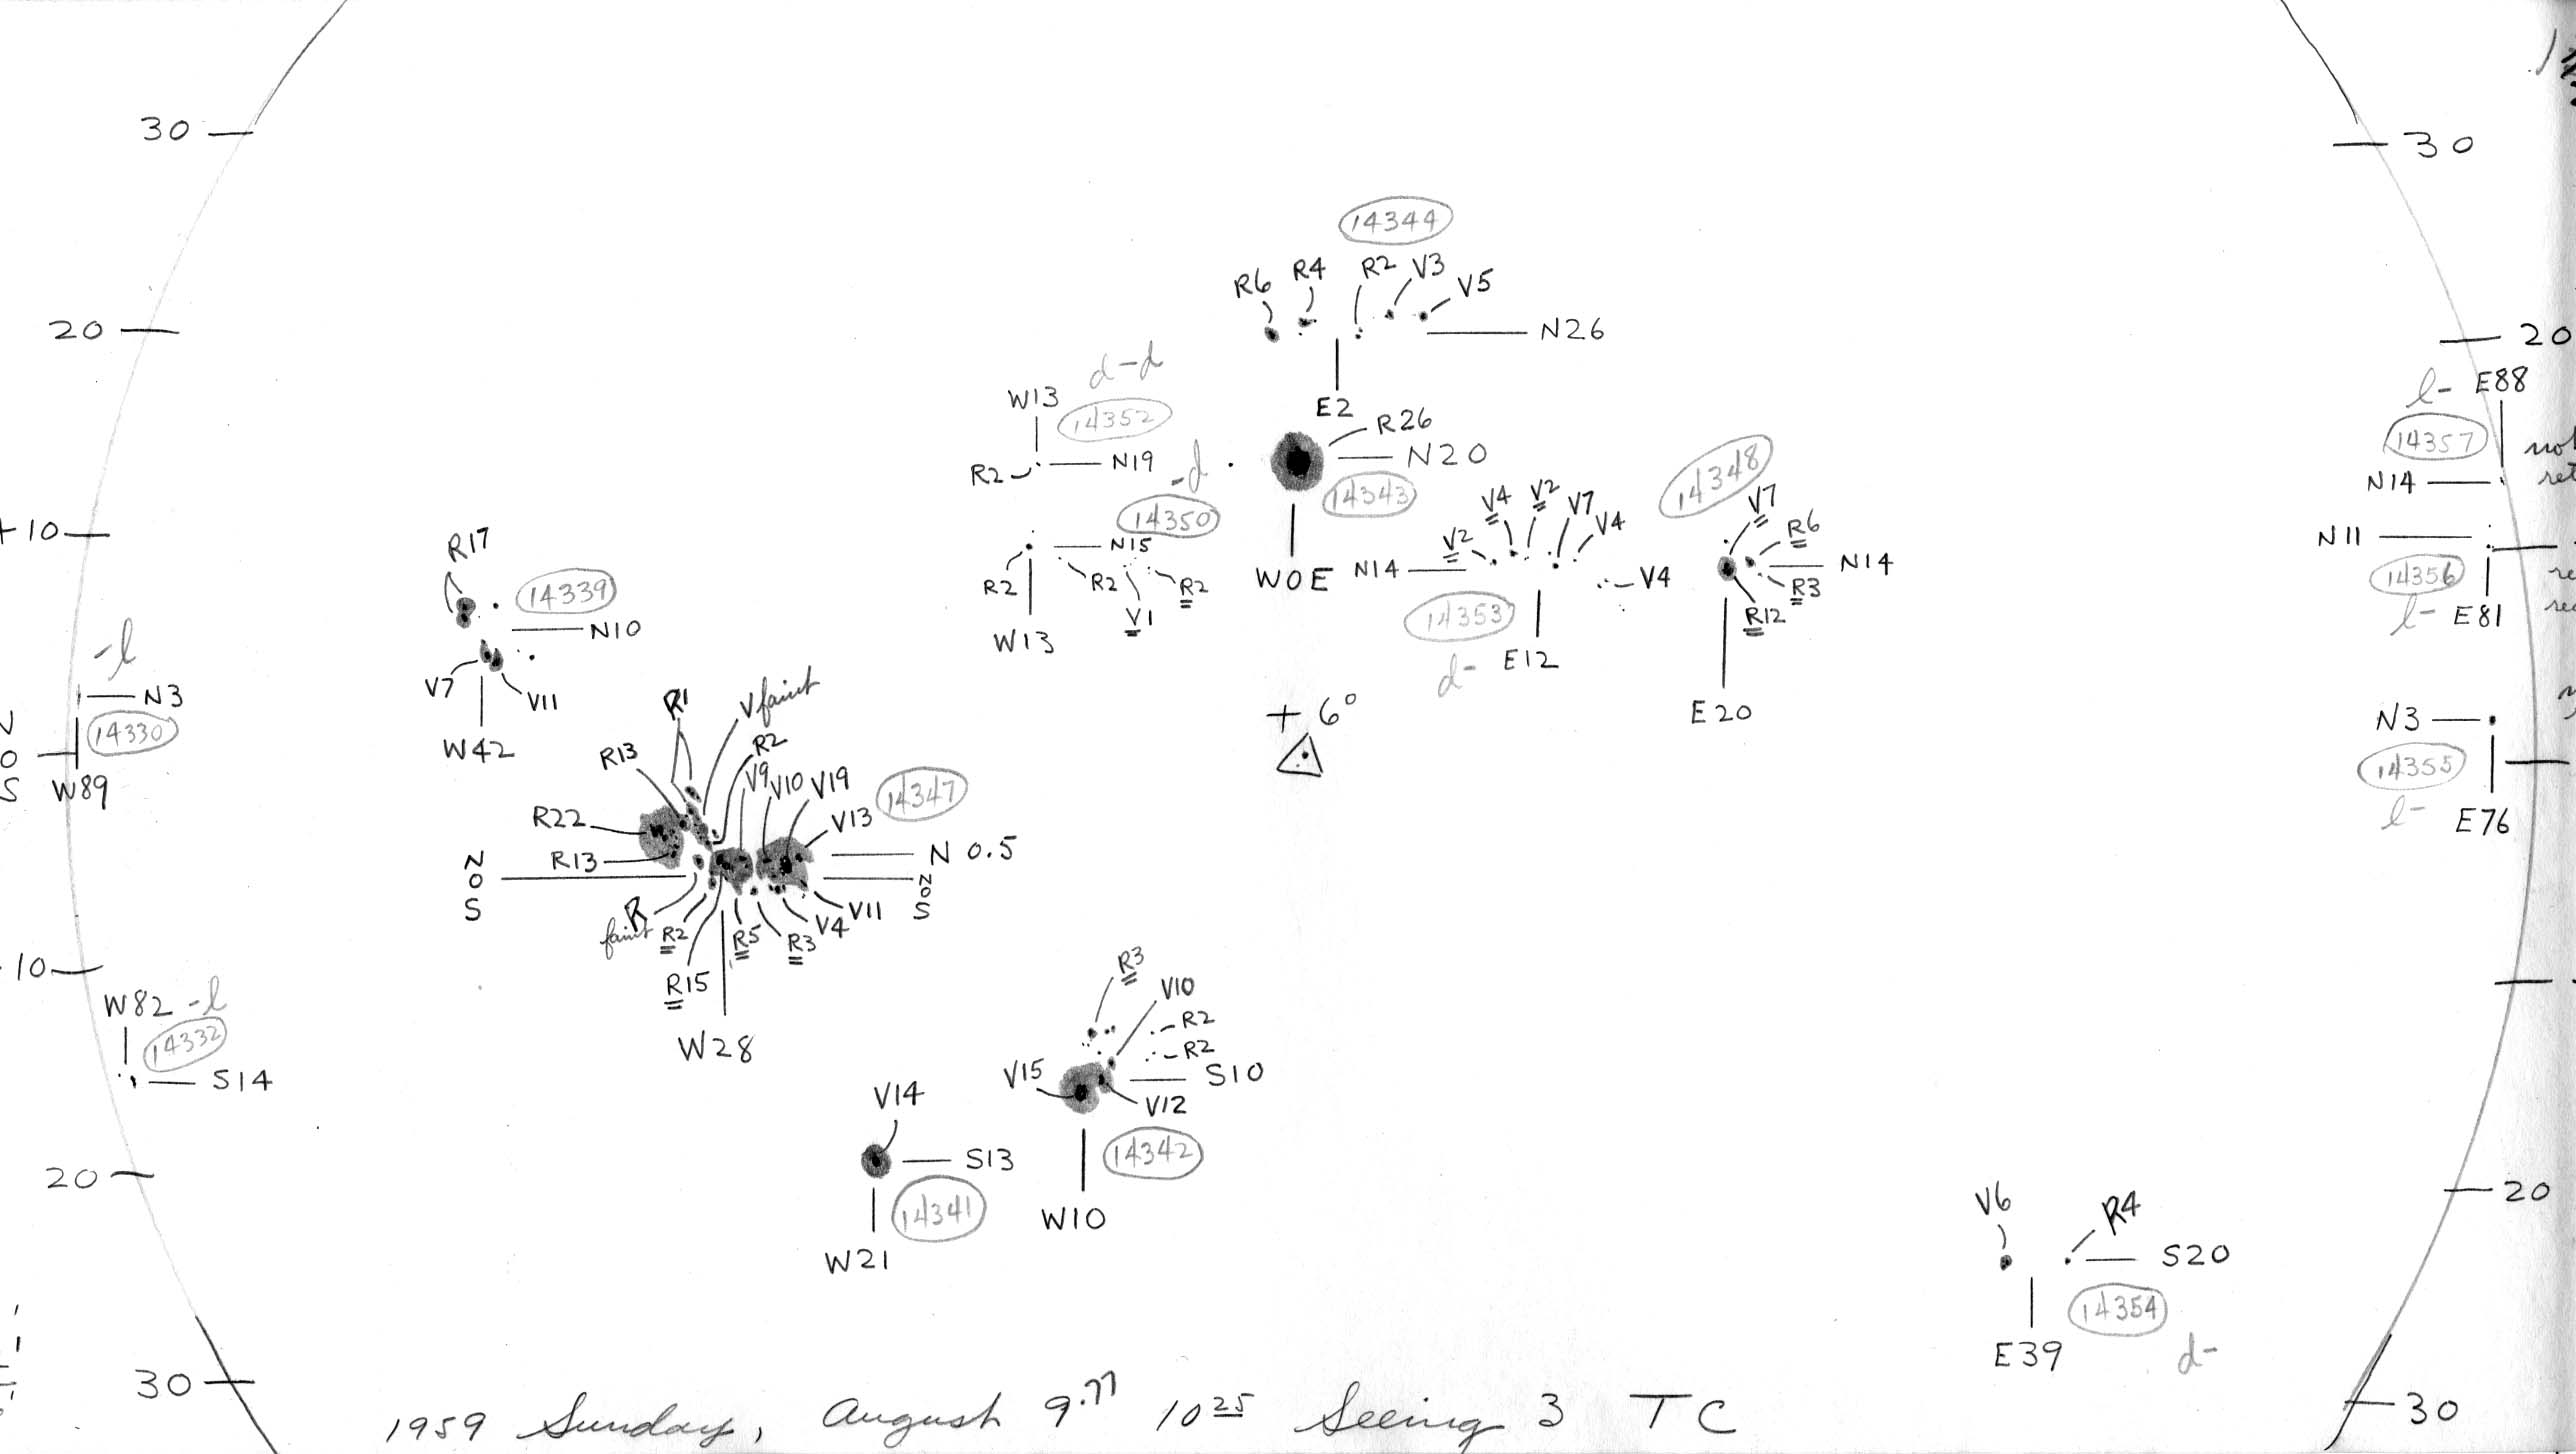 30
30
14344
R6 R4 R2 V3 V5
20
N26
20
d-d
W13
14352
E2
l- E88
R26
14357
not
R2
N19
N20
-d
14343
N14
ret
14350
V4 V2 V7 V4
14348
V7
+10
R17
N15
V2
R6
N11
14339
R2
R2
V1
R2
W0E
N14
V4
N14
R3
R12
14356
re
N10
W13
14353
l- E81
-l
d- E12
V7
V11
N3
R1
V faint
+ 6°
E20
N3
14330
W42
R13
R2
N
0
S
W89
V9 V10 V19
14347
14355
R22
V13
l-
E76
R13
N 0.5
N
O
S
N
O
S
R
faint
R2
R5
R3
V4
V11
10
R15
R3
W82 -l
V10
14332
W28
R2
R2
S14
V15
S10
V14
V12
S13
14342
20
14341
W10
20
V6
R4
W21
S20
14354
E39
d-
30
1959 Sunday, August 9.77 10 25 Seeing 3 TC
30